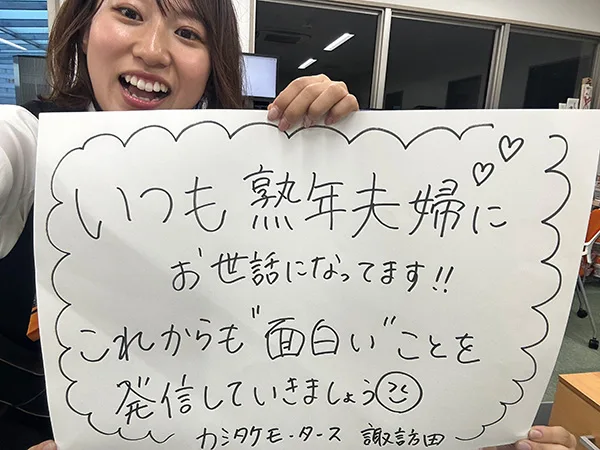 いつも熟年夫婦に♡♡
お世話になってます!!
これからも"面白い"ことを
発信していきましょう
カシタケモータース 諏訪田